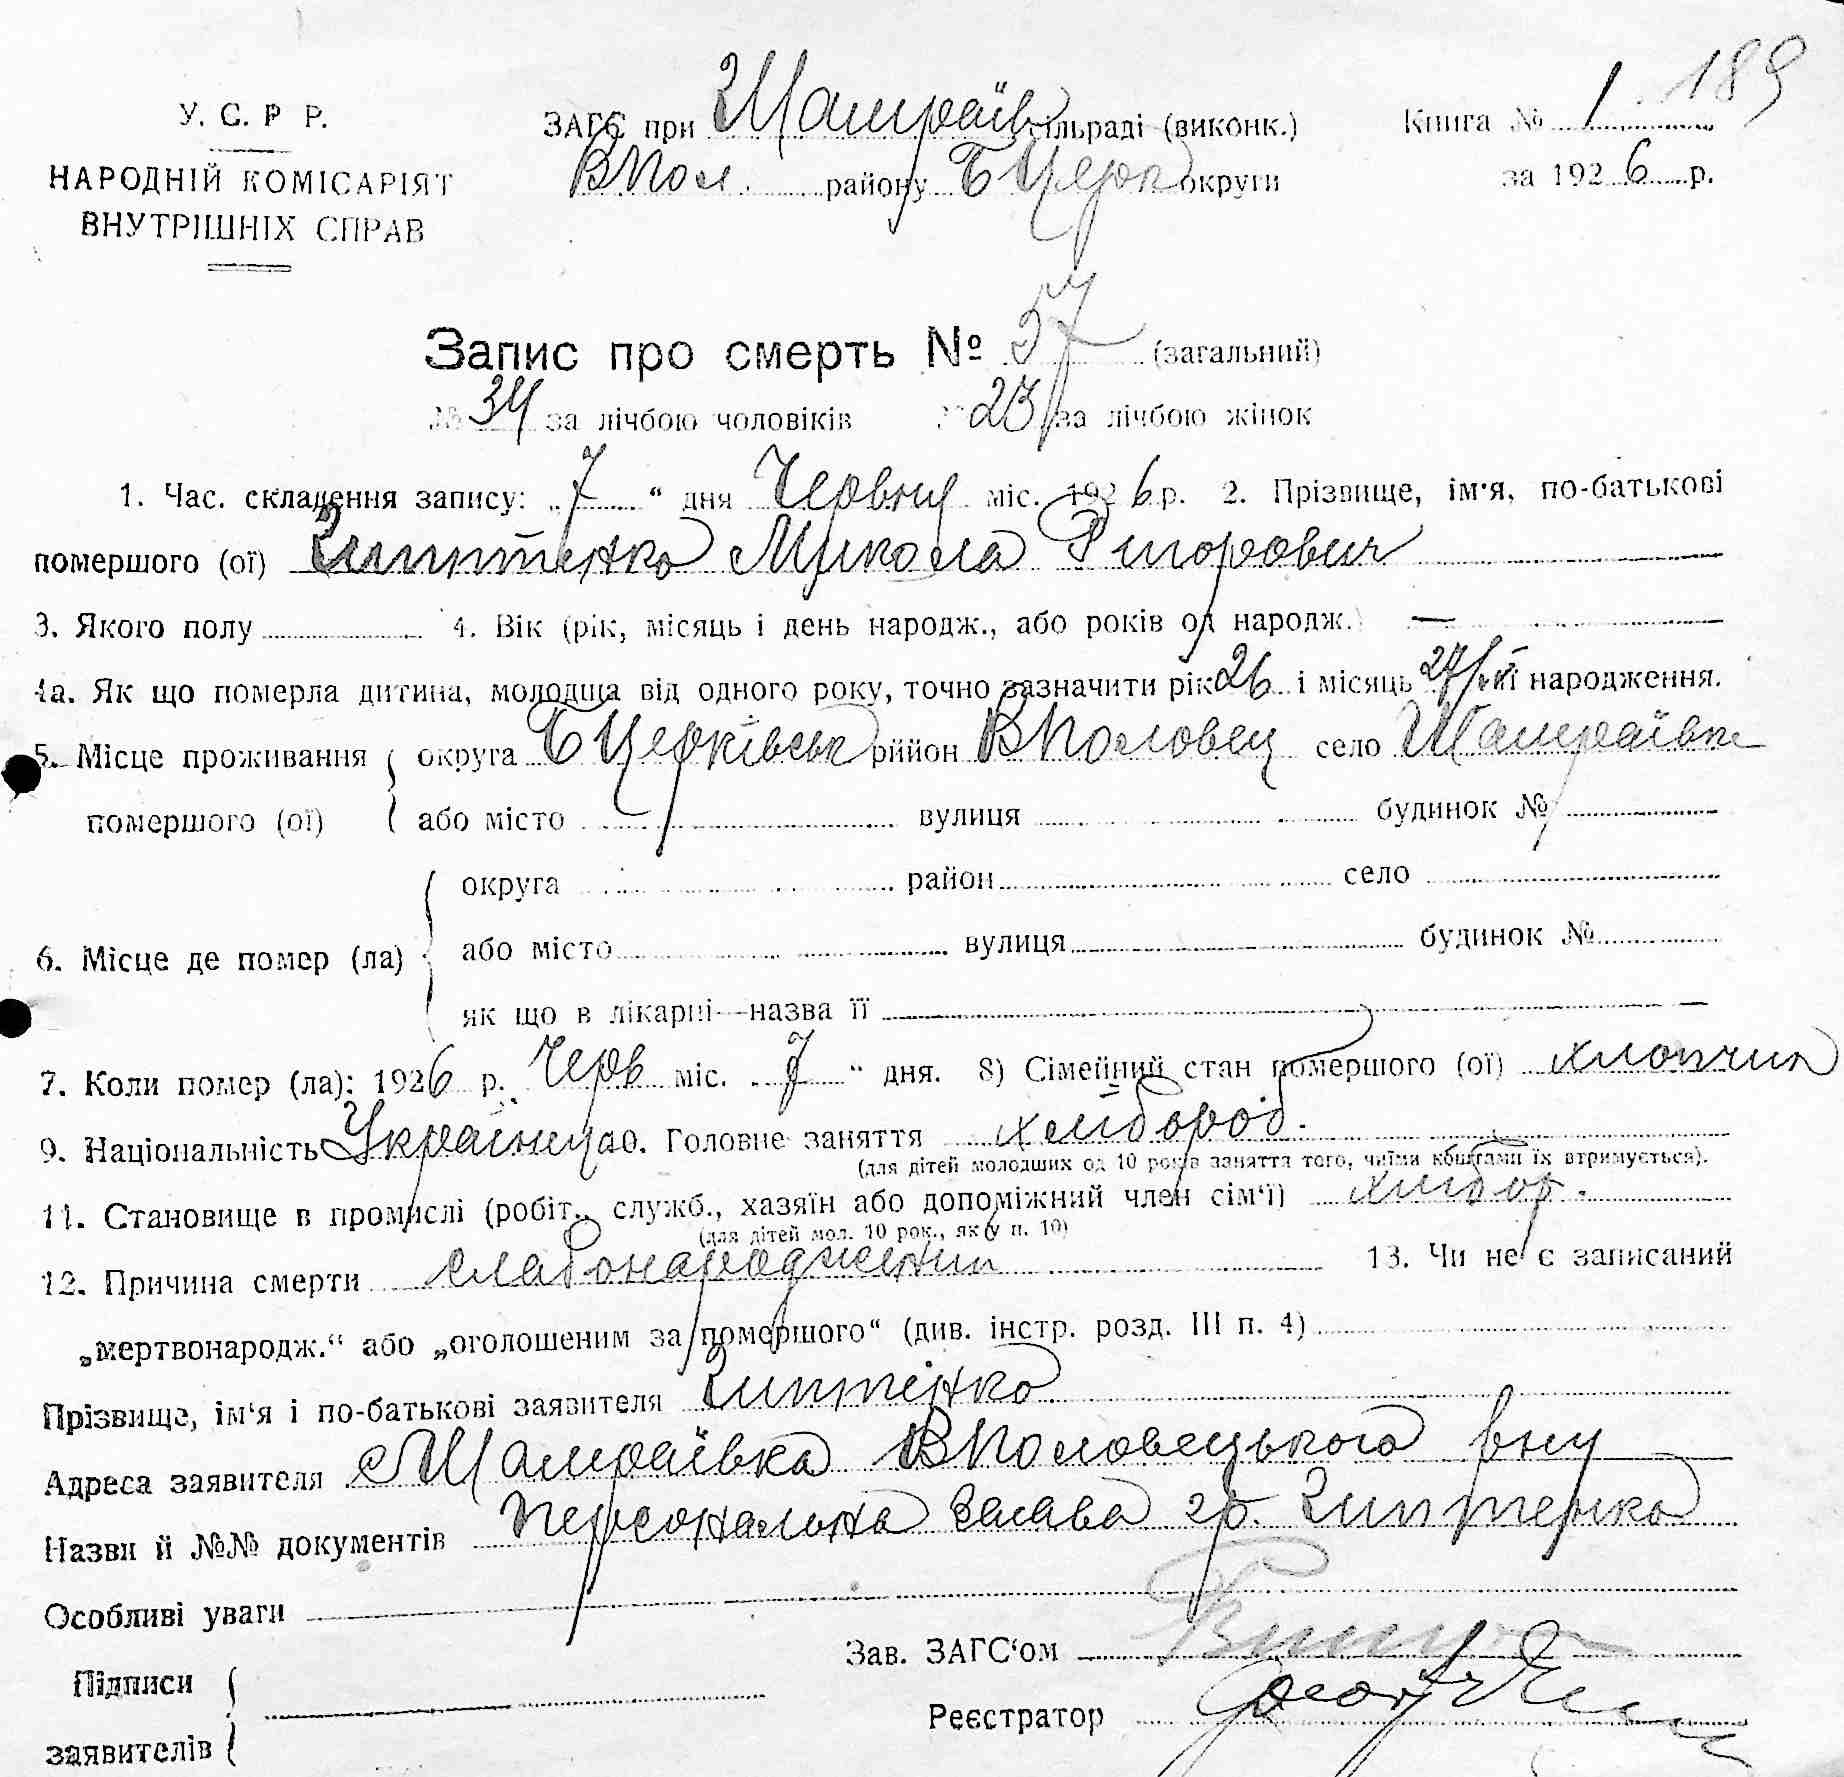 189
У. С. Р Р.
НАРОДНІЙ КОМІСАРІЯТ
ВНУТРІШНІХ СПРАВ
ЗАГС при Шамраїв сільраді (виконк.)
ВПол. району БЦерк округи
Книга № 1
за 1926 р.
Запис про смерть № 57 (загальний)
№ 34 за лічбою чоловіків № 23 за лічбою жінок
1. Час. складення запису: „7“ дня Червня міс. 1926 р. 2. Прізвище, ім'я, по-батькові
помершого (ої) Микола Григорович
3. Якого полу 4. Вік (рік, місяць і день народж., або років од народж.) —
4а. Як що померла дитина, молодша від одного року, точно зазначити рік 26 і місяць її народження.
5. Місце проживання помершого (ої) округа БЦерківськ рййон ВПоловец село Шамраївка
або місто вулиця будинок №
6. Місце де помер (ла) округа район село
або місто вулиця будинок №
як що в лікарні—назва її
7. Коли помер (ла): 1926 р. Черв міс. „7“ дня. 8) Сімейний стан помершого (ої) хлопчик
9. Національність Українец 10. Головне заняття хлібороб.
(для дітей молодших од 10 років заняття того, чиїми коштами їх втримується).
11. Становище в промислі (робіт., служб., хазяїн або допоміжний член сім'ї) хлібор.
(для дітей мол. 10 рок., як у п. 10)
12. Причина смерти слабонароджений 13. Чи не є записаний
„мертвонародж.“ або „оголошеним за помершого“ (див. інстр. розд. III п. 4)
Прізвище, ім'я і по-батькові заявителя
Адреса заявителя с Шамраївка ВПоловецького рну
Назви й №№ документів Персональна заява гр.
Особливі уваги
Зав. ЗАГС'ом
Підписи заявителів
Реєстратор